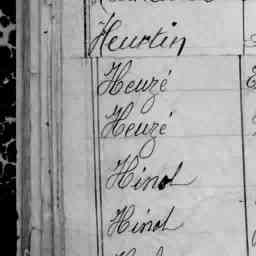 Heurtin
Heuzé
Heuzé
Hinot
Hinot